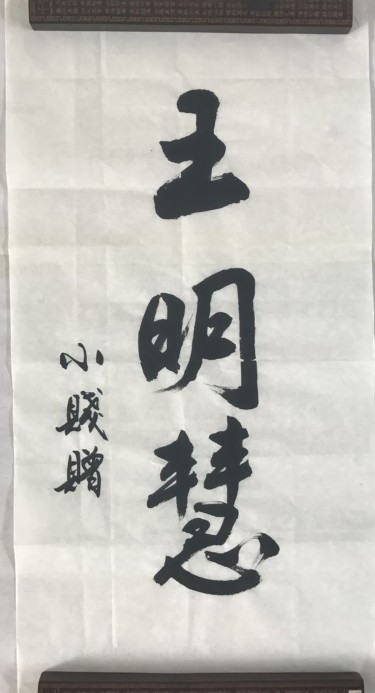 王明慧
小賤贈